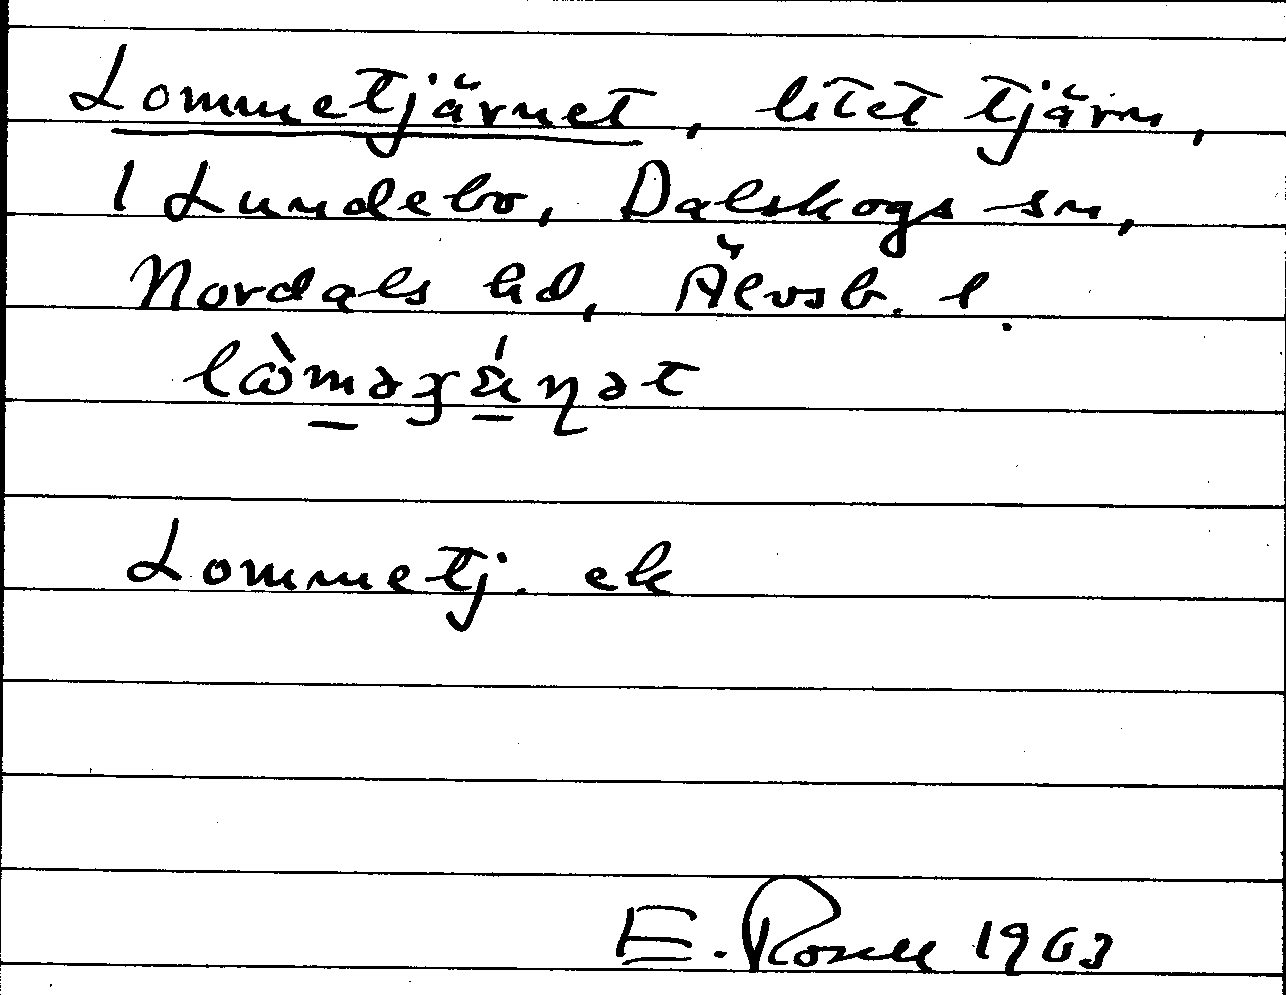 Lommetjärnet, litet tjärn,
1 Lundebo, Dalskogs sn,
Nordals hd, Älvsb. l.
Lommetj. ek
E. Rosell 1963